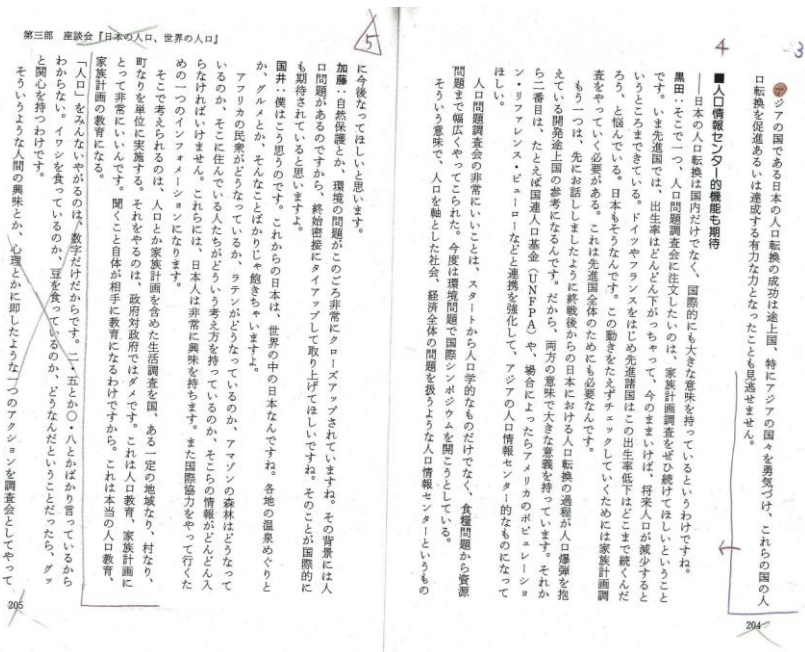 3
4
アジアの国である日本の人口転換の成功は途上国、特にアジアの国々を勇気づけ、これらの国の人
口転換を促進あるいは達成する有力な力となったことも見逃せません。
■人口情報センター的機能も期待
――日本の人口転換は国内だけでなく、国際的にも大きな意味を持っているというわけですね。
黒田：そこで一つ、人口問題調査会に注文したいのは、家族計画調査をぜひ続けてほしいということ
です。いま先進国では、出生率はどんどん下がっちゃって、今のままいけば、将来人口が減少すると
いうところまできている。ドイツやフランスをはじめ先進諸国はこの出生率低下はどこまで続くんだ
ろう、と悩んでいる。日本もそうなんです。この動きをたえずチェックしていくためには家族計画調
査をやっていく必要がある。これは先進国全体のためにも必要なんです。
もう一つは、先にお話ししましたように終戦後からの日本における人口転換の過程が人口爆弾を抱
えている開発途上国の参考になるんです。だから、両方の意味で大きな意義を持っています。それか
ら二番目は、たとえば国連人口基金（UNFPA）や、場合によったらアメリカのポピュレーショ
ン・リファレンス・ビューローなどと連携を強化して、アジアの人口情報センター的なものになって
ほしい。
人口問題調査会の非常にいいことは、スタートから人口学的なものだけでなく、食糧問題から資源
問題まで幅広くやってこられた。今度は環境問題で国際シンポジウムを開こうとしている。
そういう意味で、人口を軸とした社会、経済全体の問題を扱うような人口情報センターというもの
204
第三部　座談会『日本の人口、世界の人口』
5
に今後なってほしいと思います。
加藤：自然保護とか、環境の問題がこのごろ非常にクローズアップされていますね。その背景には人
口問題があるのですから、終始密接にタイアップして取り上げてほしいですね。そのことが国際的に
も期待されていると思いますよ。
国井：僕はこう思うのです。これからの日本は、世界の中の日本なんですね。各地の温泉めぐりと
か、グルメとか、そんなことばかりじゃ飽きちゃいますよ。
アフリカの民衆がどうなっているか、ラテンがどうなっているのか、アマゾンの森林はどうなって
いるのか、そこに住んでいる人たちがどういう考え方を持っているのか、そこらの情報がどんどん入
らなければいけません。これらには、日本人は非常に興味を持ちます。また国際協力をやって行くた
めの一つのインフォメーションになります。
そこで考えられるのは、人口とか家族計画を含めた生活調査を国、ある一定の地域なり、村なり、
町なりを単位に実施する。それをやるのは、政府対政府ではダメです。これは人口教育、家族計画に
とって非常にいいんです。聞くこと自体が相手に教育になるわけですから。これは本当の人口教育、
家族計画の教育になる。
「人口」をみんないやがるのは、数字だけだからです。二・五とか〇・八とかばかり言っているから
わからない。イワシを食っているのか、豆を食っているのか、どうなんだということだったら、グッ
と関心を持つわけです。
そういうような人間の興味とか、心理とかに即したような一つのアクションを調査会としてやって
205